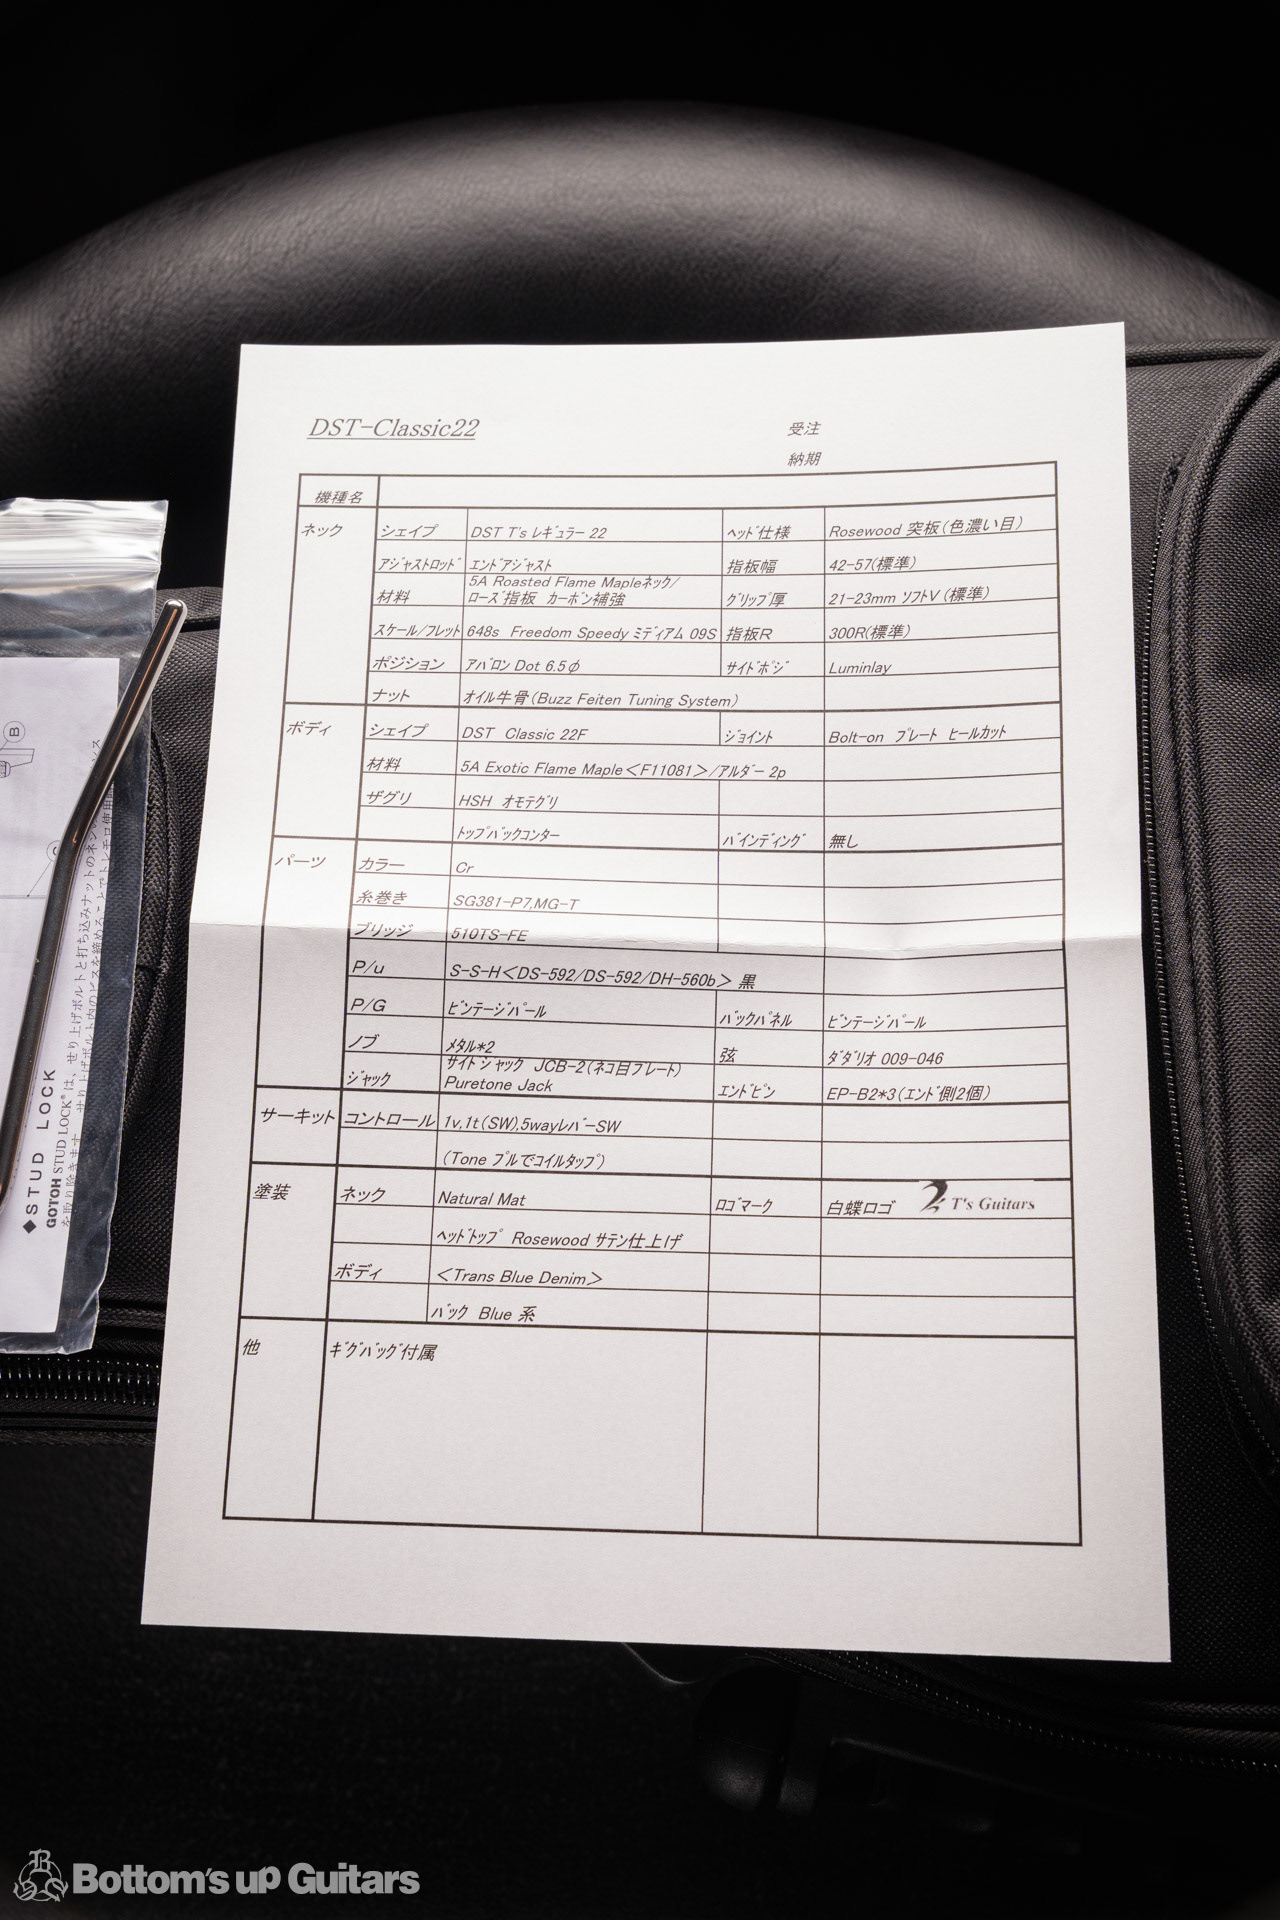 DST-Classic22
受注
納期
機種名
ネック シェイプ DST T's ﾚｷﾞｭﾗｰ 22 ﾍｯﾄﾞ仕様 Rosewood 突板（色濃い目）
ｱｼﾞｬｽﾄﾛｯﾄﾞ ｴﾝﾄﾞｱｼﾞｬｽﾄ 指板幅 42-57(標準)
材料 5A Roasted Flame Mapleネック/
ﾛｰｽﾞ指板 ｶｰﾎﾞﾝ補強 ｸﾞﾘｯﾌﾟ厚 21-23mm ｿﾌﾄV (標準)
ｽｹｰﾙ/ﾌﾚｯﾄ 648s Freedom Speedy ﾐﾃﾞｨｱﾑ 09S 指板R 300R(標準)
ポジション ｱﾊﾞﾛﾝ Dot 6.5φ ｻｲﾄﾞﾎﾟｼﾞ Luminlay
ナット オイル牛骨（Buzz Feiten Tuning System）
ボディ シェイプ DST Classic 22F ｼﾞｮｲﾝﾄ Bolt-on ﾌﾟﾚｰﾄ ﾋｰﾙｶｯﾄ
材料 5A Exotic Flame Maple＜F11081＞/ｱﾙﾀﾞｰ 2p
ザグリ HSH ｵﾓﾃｸﾞﾘ
ﾄｯﾌﾟﾊﾞｯｸｺﾝﾀｰ ﾊﾞｲﾝﾃﾞｨﾝｸﾞ 無し
パーツ カラー Cr
糸巻き SG381-P7,MG-T
ブリッジ 510TS-FE
P/u S-S-H＜DS-592/DS-592/DH-560b＞ 黒
P/G ﾋﾞﾝﾃｰｼﾞﾊﾟｰﾙ ﾊﾞｯｸﾊﾟﾈﾙ ﾋﾞﾝﾃｰｼﾞﾊﾟｰﾙ
ノブ ﾒﾀﾙ*2 弦 ﾀﾞﾀﾞﾘｵ 009-046
ｼﾞｬｯｸ ｻｲﾄﾞｼﾞｬｯｸ JCB-2（ネコ目プレート）
Puretone Jack ｴﾝﾄﾞﾋﾟﾝ EP-B2*3（ｴﾝﾄﾞ側2個）
サーキット コントロール 1v,1t（SW),5wayﾚﾊﾞｰSW
（Tone ﾌﾟﾙでｺｲﾙﾀｯﾌﾟ）
塗装 ネック Natural Mat ﾛｺﾞﾏｰｸ 白蝶ロゴ T's Guitars
ﾍｯﾄﾞﾄｯﾌﾟ Rosewood ｻﾃﾝ仕上げ
ボディ ＜Trans Blue Denim＞
ﾊﾞｯｸ Blue 系
他 ｷﾞｸﾞﾊﾞｯｸﾞ付属
B
◆STUD LOCK
GOTOH STUD LOCK®は、せり上げボルトと打ち込みナットのネジ
Bottom's up Guitars